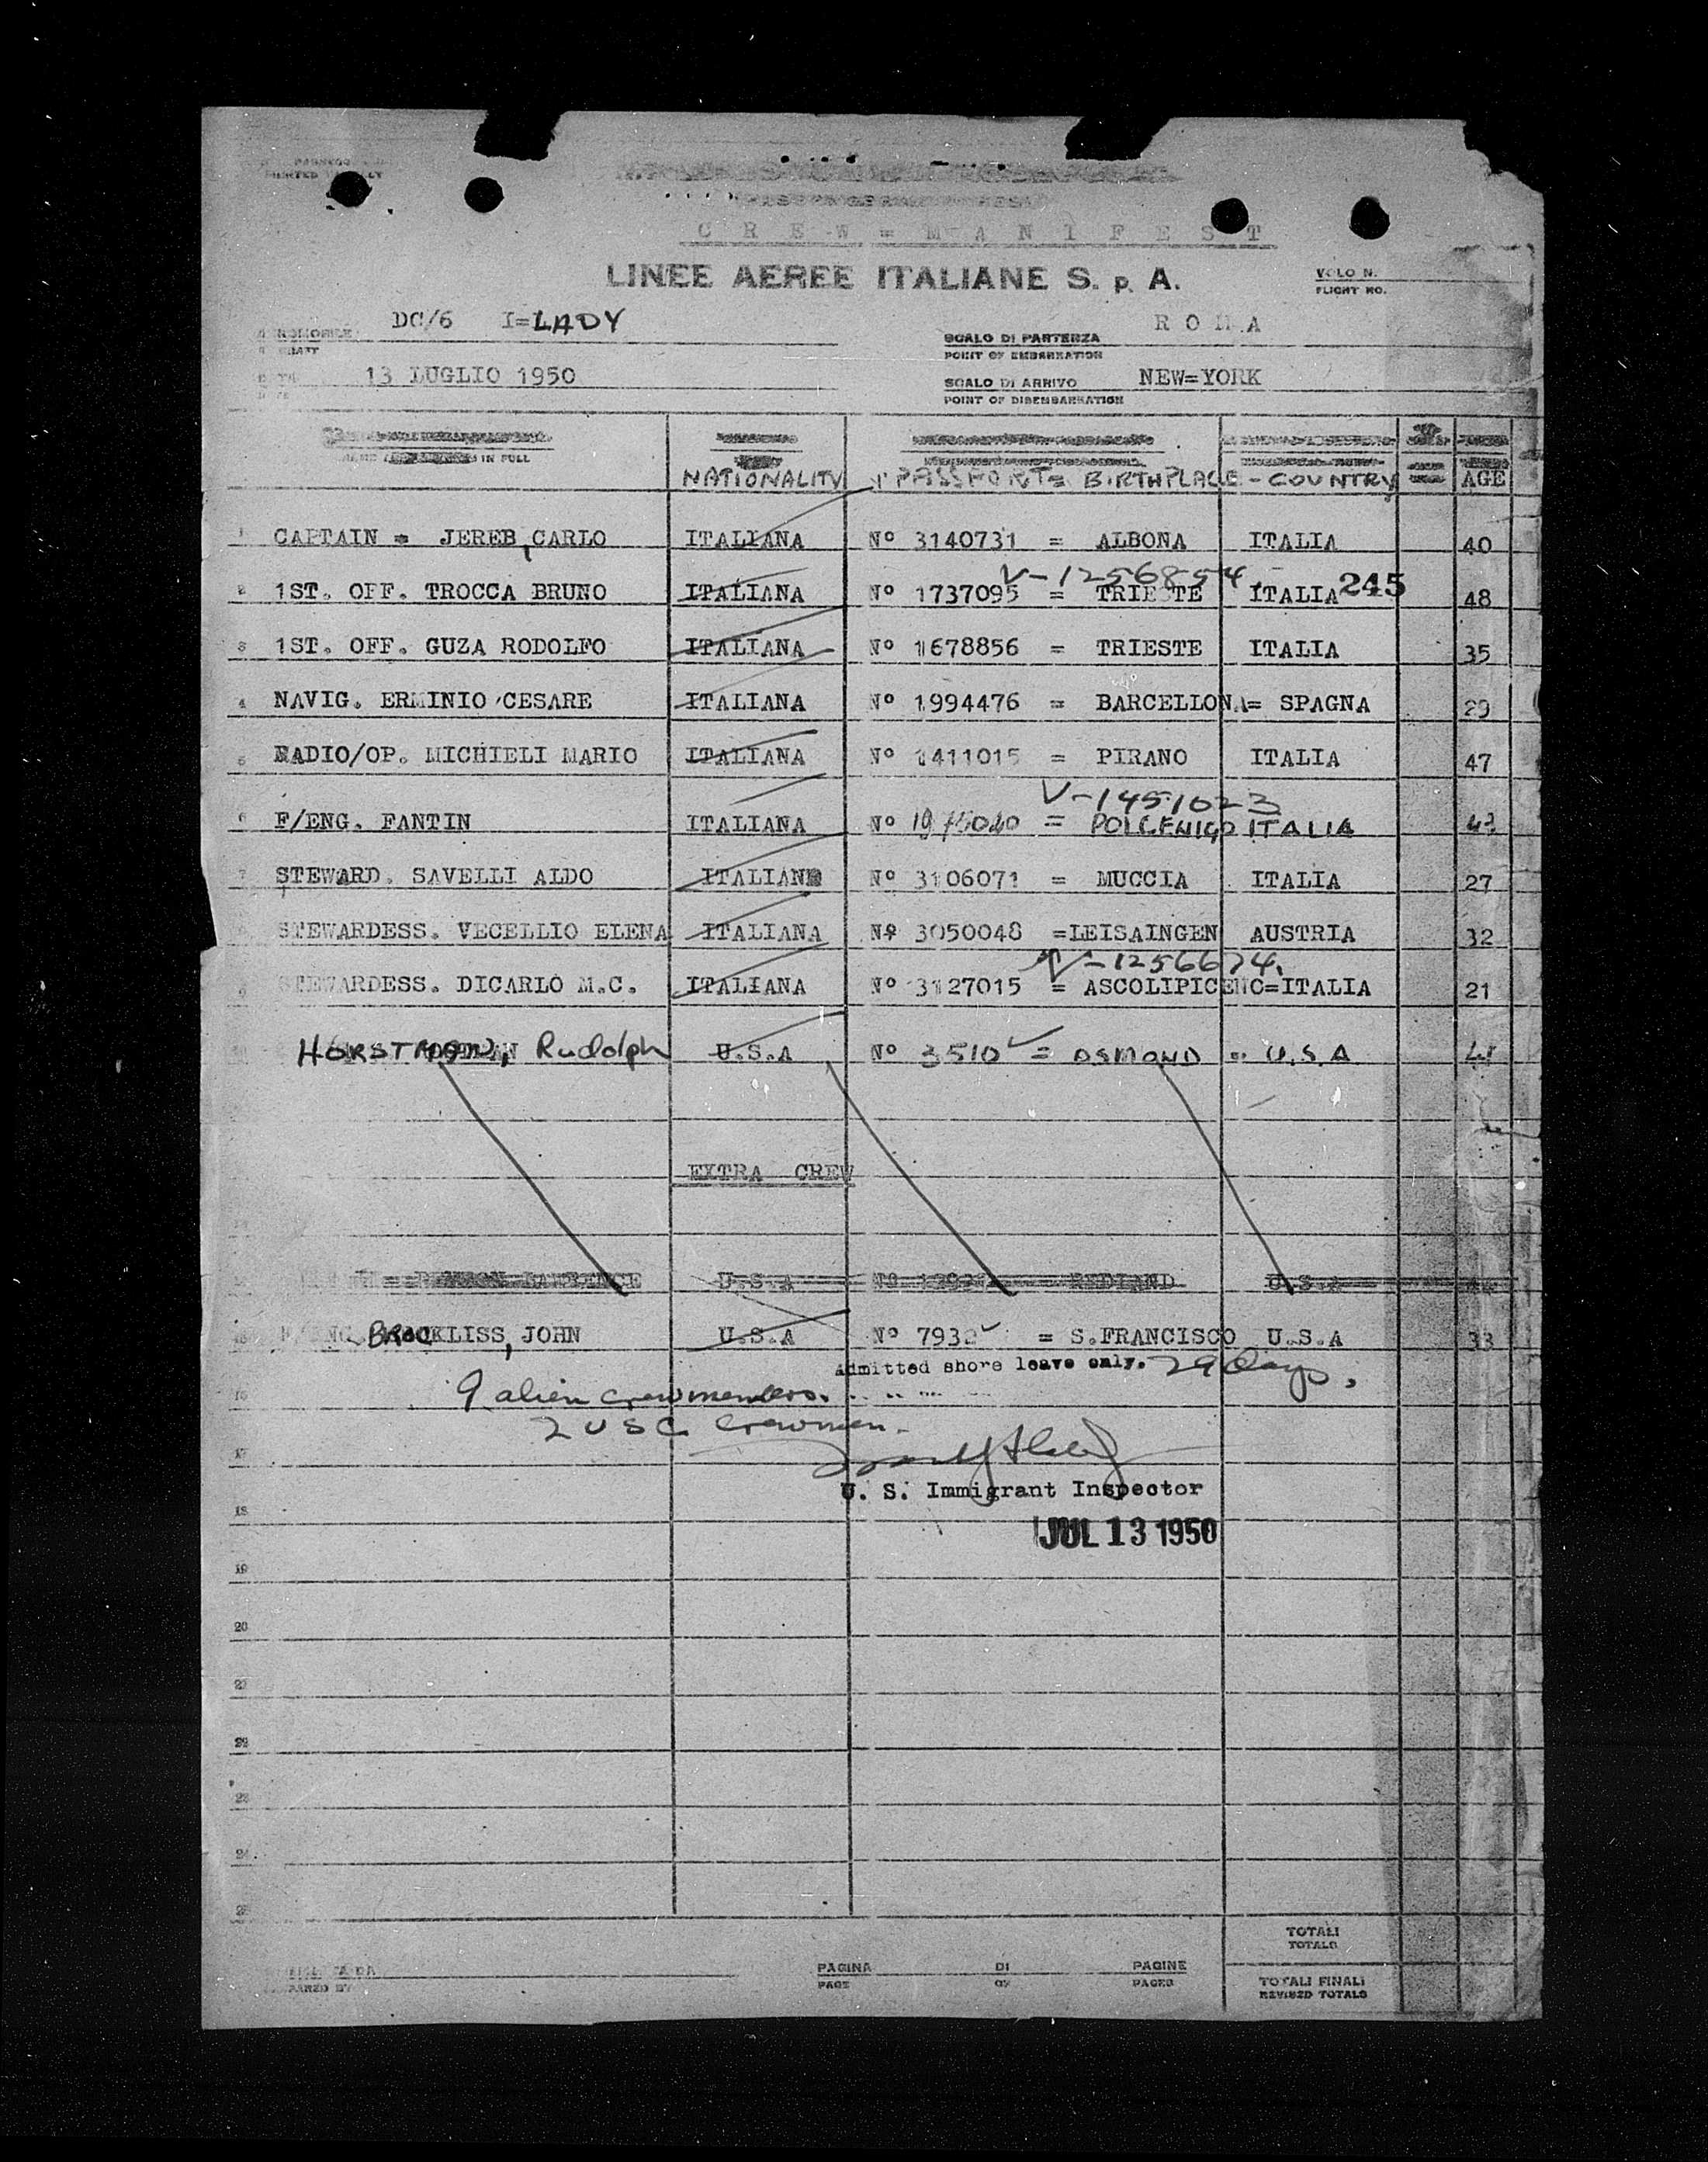 CREW = MANIFEST
LINEE AEREE ITALIANE S. p. A.
VOLO N.
FLIGHT NO.
DC/6 I=LADY
ROMA
SCALO DI PARTENZA
POINT OF EMBARKATION
13 LUGLIO 1950
SCALO DI ARRIVO NEW=YORK
POINT OF DISEMBARKATION
IN FULL
NATIONALITY PASSPORT= BIRTHPLACE - COUNTRY AGE
1 CAPTAIN = JEREB, CARLO ITALIANA Nº 3140731 = ALBONA ITALIA 40
V-1256854
2 1ST. OFF. TROCCA BRUNO ITALIANA Nº 1737095 = TRIESTE ITALIA 245 48
3 1ST. OFF. GUZA RODOLFO ITALIANA Nº 1678856 = TRIESTE ITALIA 35
4 NAVIG. ERMINIO CESARE ITALIANA Nº 1994476 = BARCELLONA= SPAGNA 29
5 RADIO/OP. MICHIELI MARIO ITALIANA Nº 1411015 = PIRANO ITALIA 47
V-1451023
6 F/ENG. FANTIN ITALIANA Nº = POLCENIGO ITALIA
7 STEWARD. SAVELLI ALDO ITALIANA Nº 3106071 = MUCCIA ITALIA 27
STEWARDESS. VECELLIO ELENA ITALIANA Nº 3050048 =LEISAINGEN AUSTRIA 32
V-1256674.
STEWARDESS. DICARLO M.C. ITALIANA Nº 3127015 = ASCOLIPICENC=ITALIA 21
HORSTMAN, Rudolph U.S.A Nº 3510 = OSMOND = U.S.A
EXTRA CREW
U.S.A Nº REDLAND U.S.A
BROCKLISS, JOHN U.S.A Nº 7932 = S.FRANCISCO U.S.A 33
Admitted shore leave only. 29 days.
9 alien crewmembers.
2 USC Crewmen.
17
U. S. Immigrant Inspector
18
JUL 13 1950
19
20
21
22
23
24
TOTALI
TOTALS
PAGINA DI PAGINE
PAGE OF PAGES
TOTALI FINALI
REVISED TOTALS